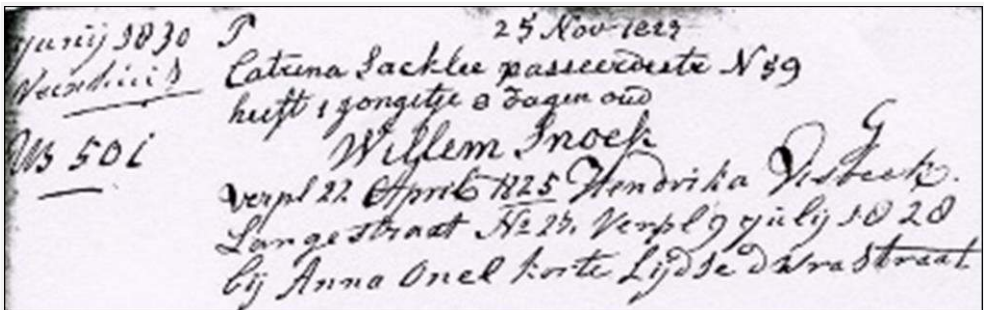 Junij 1830 P 25 Nov 1823
Catrina Sacklee passeerdestr N 59
heeft 1 jongetje 8 dagen oud
Willem Snoek
WB 501 G
verpl 22 April 1825 Hendrika Visbeek.
Langestraat No 27. Verpl 9 July 1828
bij Anna Onel korte Lijdsedwrastraat